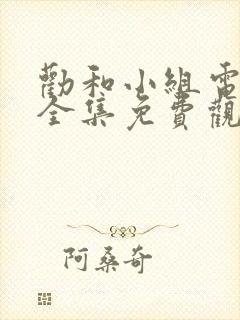 勸和小組電
全集免費觀
阿桑奇